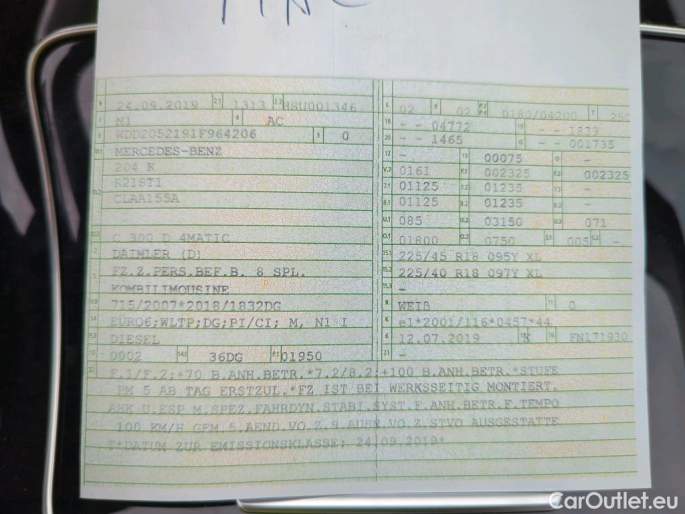 24.09.2019 1313 02 02 0180/04200
M1 AC
WDD2052191F964206 0
- - 04772 - - 1839
- - 1465 - - 001735
MERCEDES-BENZ
- 00075 -
204 K
0161 002325 002325
R2I8T1
01125 01235 -
CLAA155A
01125 01235 -
085 03150 071
C 300 D 4MATIC
01800 0750 005 -
DAIMLER (D)
225/45 R18 095Y XL
FZ.Z.PERS.BEF.B. 8 SPL.
225/40 R18 097Y XL
KOMBILIMOUSINE
-
715/2007*2018/1832DG
WEIß 0
EURO6;WLTP;DG;PI/CI; M, N1 I
e1*2001/116*0457*44
DIESEL
12.07.2019 K FN171930
0002 36DG 01950
-
F.1/F.2:+70 B.ANH.BETR.*7.2/8.2:+100 B.ANH.BETR.*STUFE
PM 5 AB TAG ERSTZUL.*FZ IST BEI WERKSSEITIG MONTIERT.
AHK U.ESP M.SPEZ.FAHRDYN.STABI.SYST.F.ANH.BETR.F.TEMPO
100 KM/H GEM.5.AEND.VO.Z.9.AUSN.VO.Z.STVO AUSGESTATTE
T*DATUM ZUR EMISSIONSKLASSE: 24.09.2019*
CarOutlet.eu